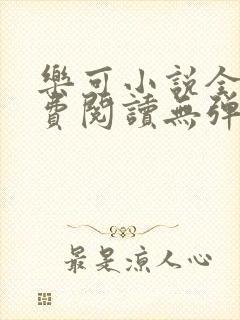 樂可小說全
費閱讀無彈
最是涼人心